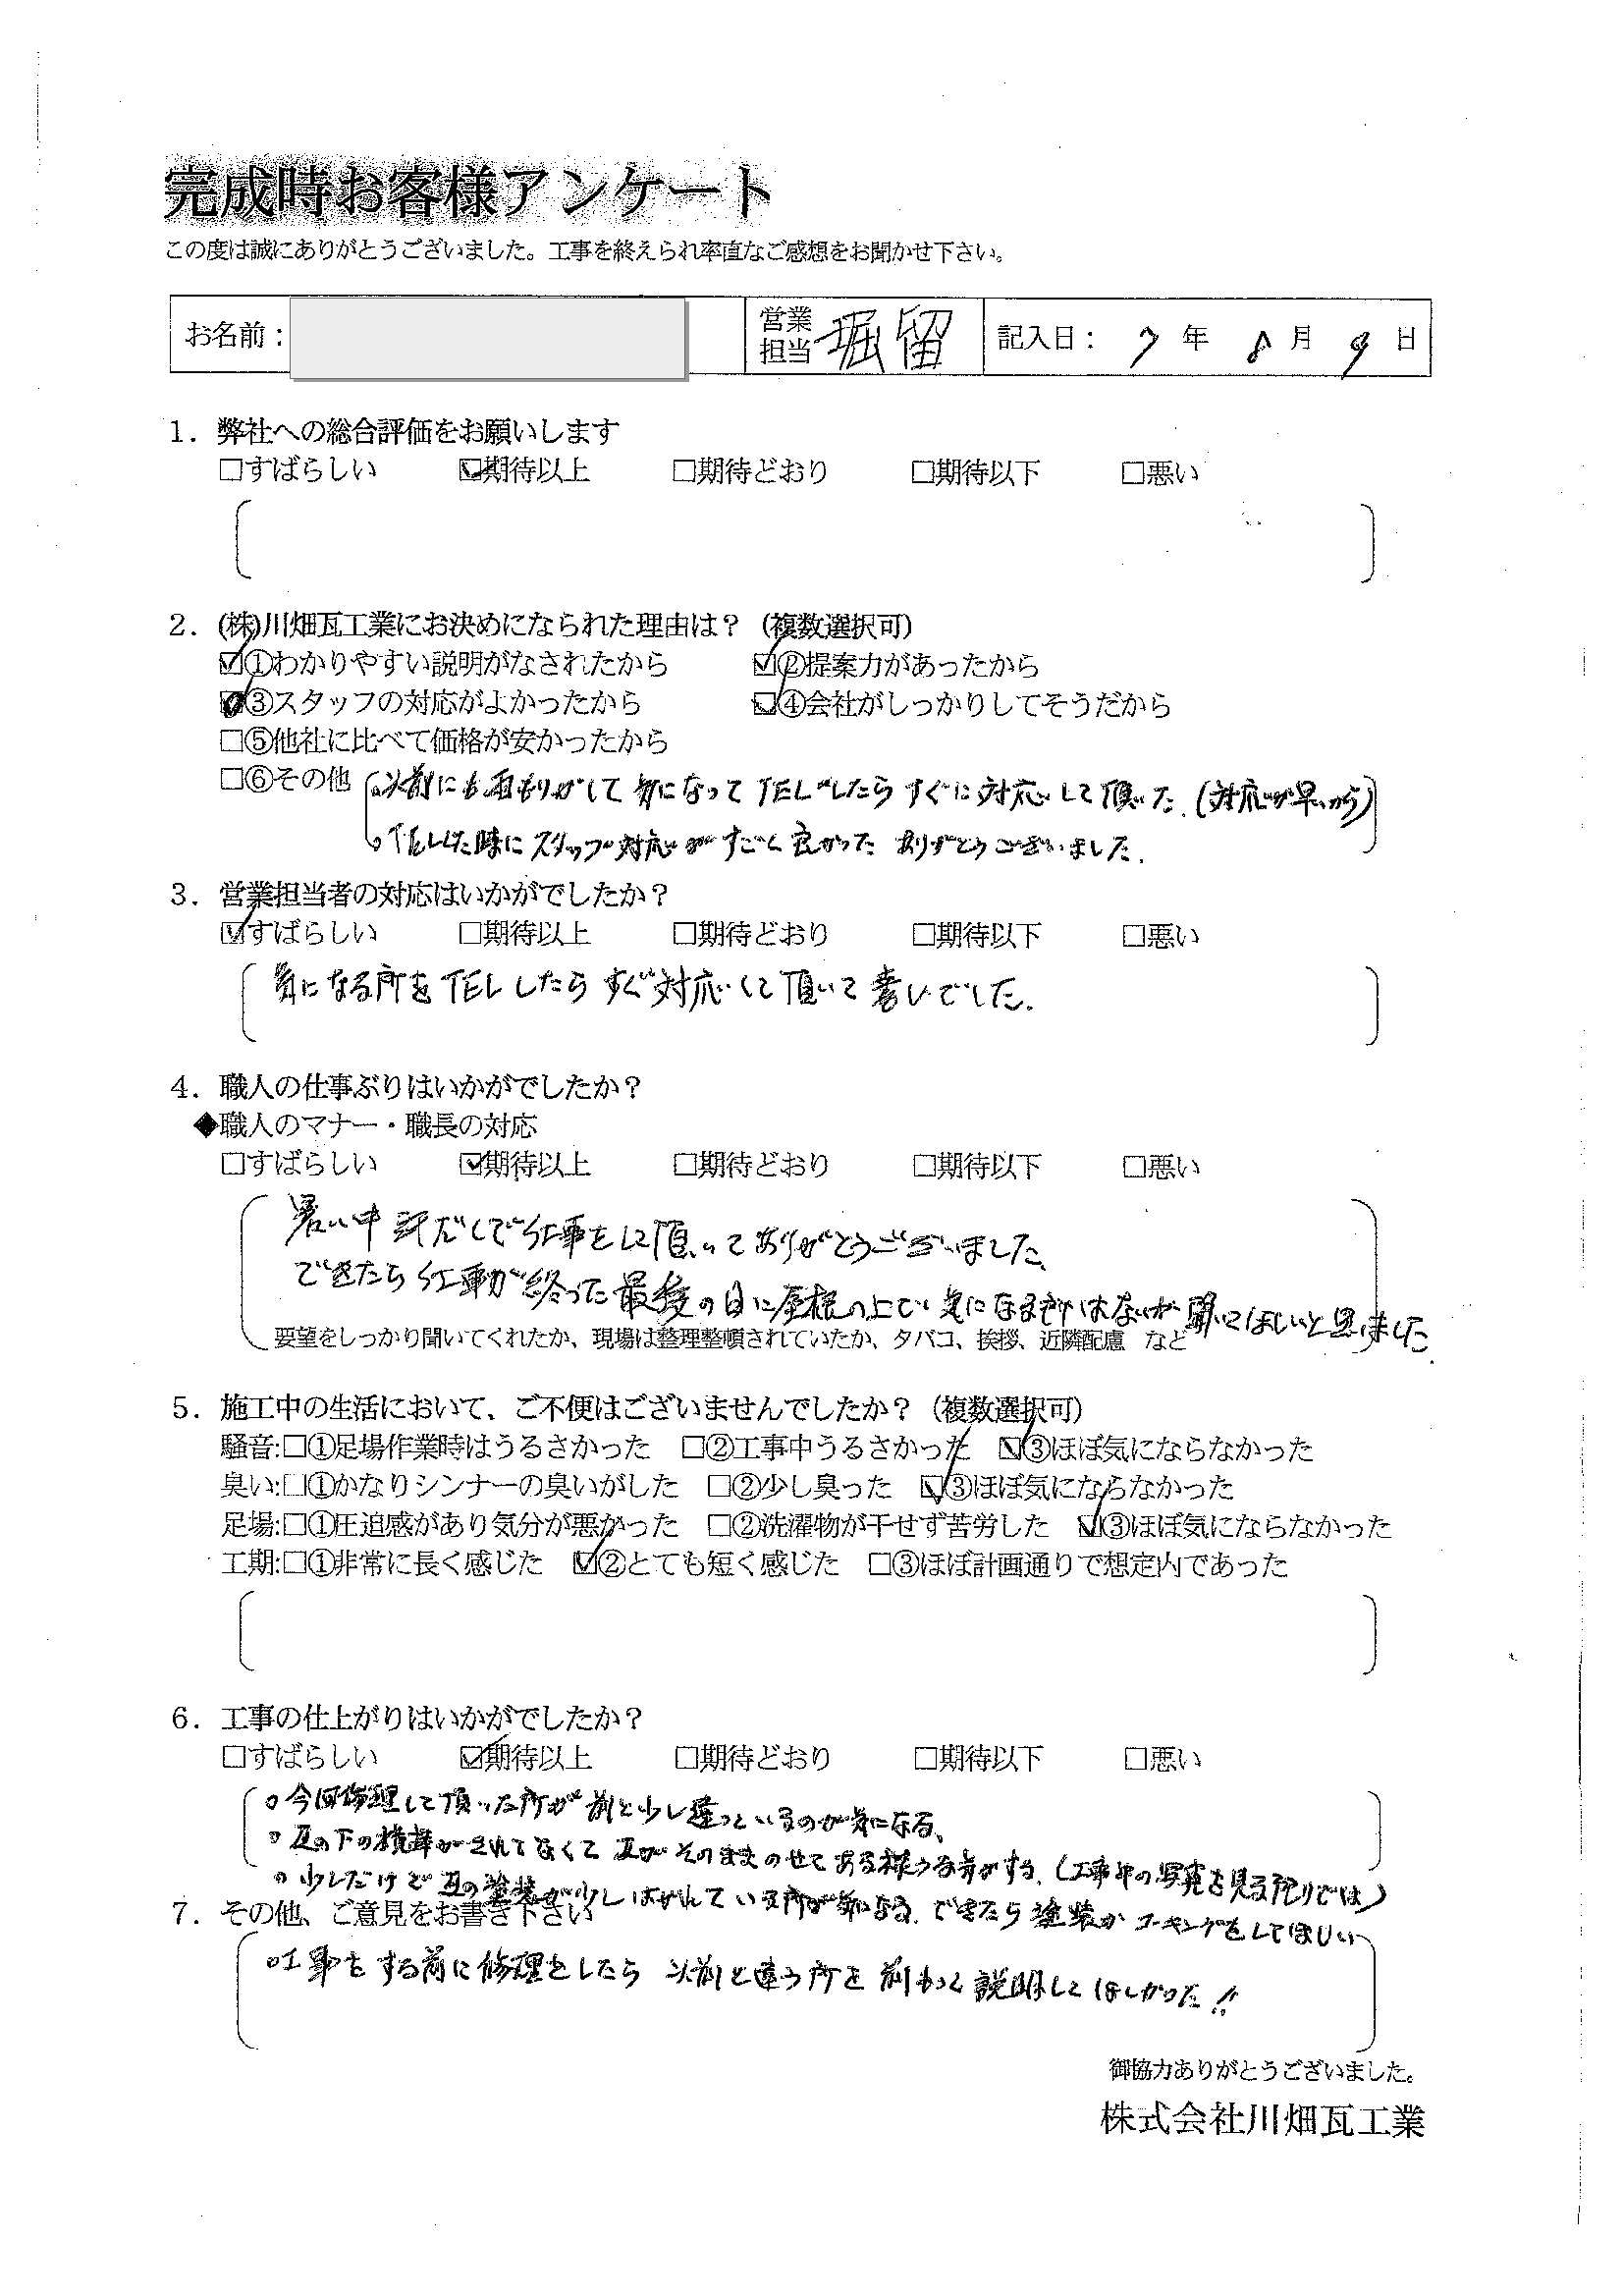 完成時お客様アンケート
この度は誠にありがとうございました。工事を終えられ率直なご感想をお聞かせ下さい。
お名前： 営業担当 堀留 記入日： 7 年 8 月 9 日
1．弊社への総合評価をお願いします
□すばらしい ☑期待以上 □期待どおり □期待以下 □悪い
2．(株)川畑瓦工業にお決めになられた理由は？（複数選択可）
☑①わかりやすい説明がなされたから ☑②提案力があったから
☑③スタッフの対応がよかったから ☑④会社がしっかりしてそうだから
□⑤他社に比べて価格が安かったから
□⑥その他 。以前にも雨もりがして気になってTELしたらすぐに対応して頂いた.(対応が早いから)
。TELした時にスタッフ対応がすごく良かった ありがとうございました.
3．営業担当者の対応はいかがでしたか？
☑すばらしい □期待以上 □期待どおり □期待以下 □悪い
気になる所をTELしたらすぐ対応して頂いて幸いでした.
4．職人の仕事ぶりはいかがでしたか？
◆職人のマナー・職長の対応
□すばらしい ☑期待以上 □期待どおり □期待以下 □悪い
暑い中 仕事をして頂いてありがとうございました、
できたら 終った最後の日に屋根の上で、気になる所はないか聞いてほしいと思いました.
要望をしっかり聞いてくれたか、現場は整理整頓されていたか、タバコ、挨拶、近隣配慮 など
5．施工中の生活において、ご不便はございませんでしたか？（複数選択可）
騒音:□①足場作業時はうるさかった □②工事中うるさかった ☑③ほぼ気にならなかった
臭い:□①かなりシンナーの臭いがした □②少し臭った ☑③ほぼ気にならなかった
足場:□①圧迫感があり気分が悪かった □②洗濯物が干せず苦労した ☑③ほぼ気にならなかった
工期:□①非常に長く感じた ☑②とても短く感じた □③ほぼ計画通りで想定内であった
6．工事の仕上がりはいかがでしたか？
□すばらしい ☑期待以上 □期待どおり □期待以下 □悪い
。今回修理して頂いた所が前と少し違っているのが気になる、
。瓦の下の がされてなくて 瓦がそのままのせてある様な がする.(工事中の写真を見る限りでは)
。少しだけど瓦の塗装が少しはがれている所が気になる.できたら塗装かコーキングをしてほしい
7．その他、ご意見をお書き下さい
。工事をする前に修理をしたら 以前と違う所を前もって説明してほしかった!!
御協力ありがとうございました。
株式会社川畑瓦工業